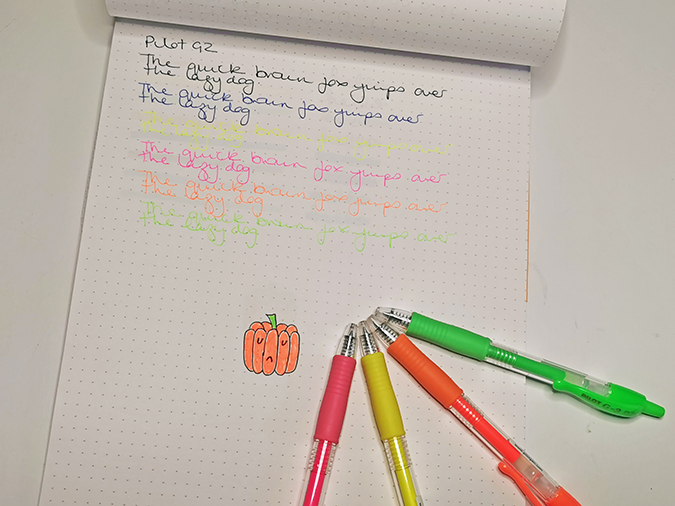 Pilot G2
The quick brain fox jumps over
the lazy dog
The quick brain fox jumps over
the lazy dog
The quick brain fox jumps over
the lazy dog
The quick brain fox jumps over
the lazy dog
The quick brain fox jumps over
the lazy dog
The quick brain fox jumps over
the lazy dog
PILOT G-2